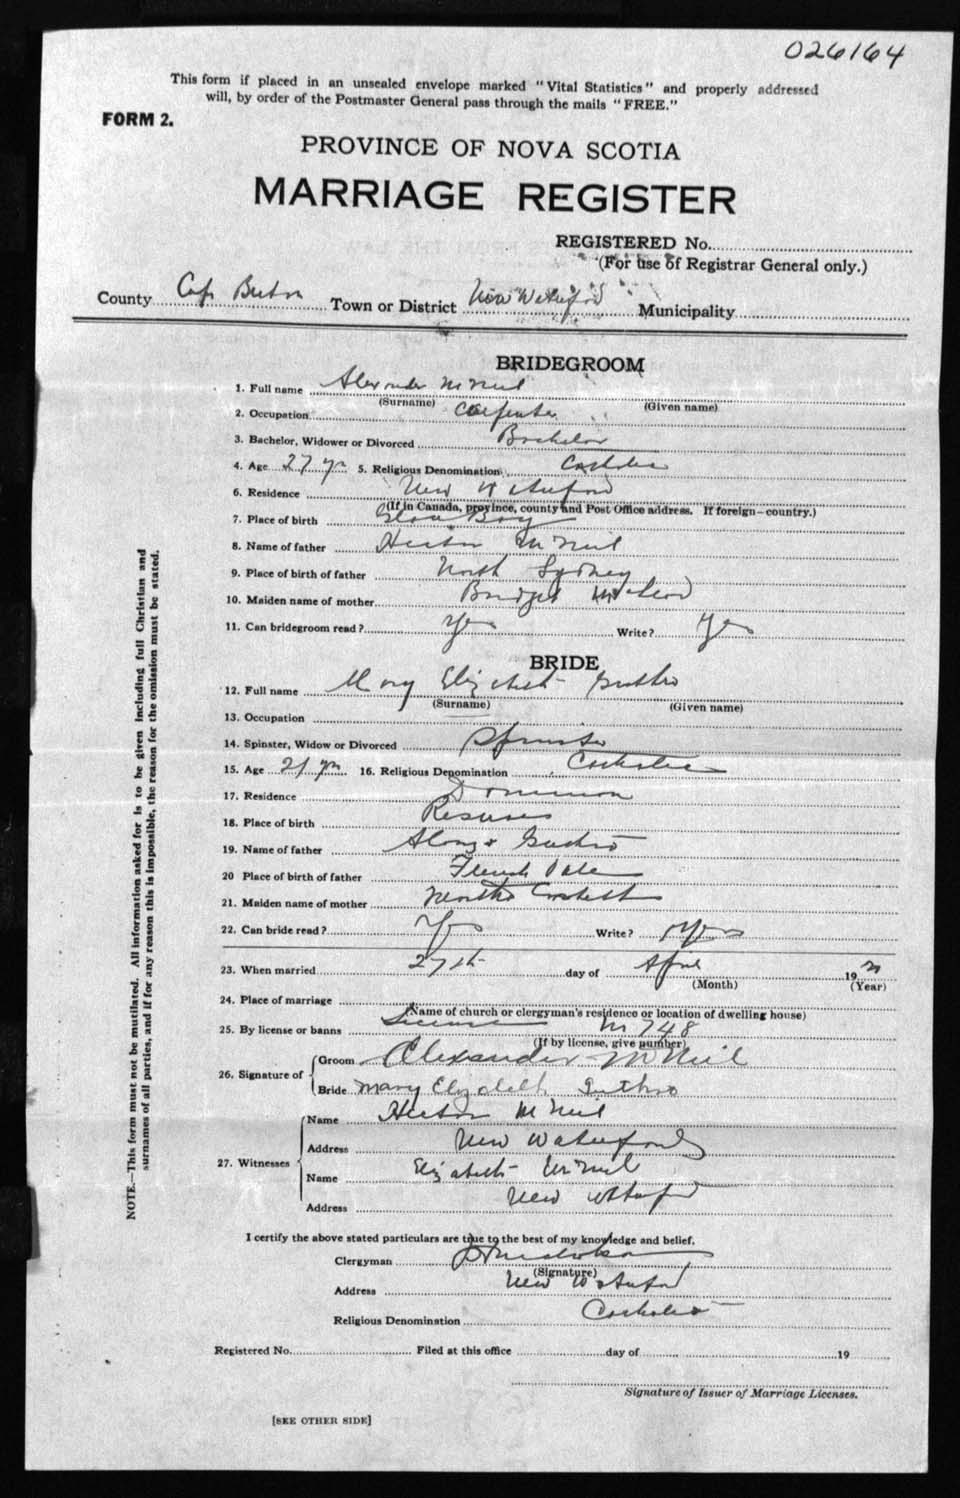 026164
This form if placed in an unsealed envelope marked "Vital Statistics" and properly addressed
will, by order of the Postmaster General pass through the mails "FREE."
FORM 2.
PROVINCE OF NOVA SCOTIA
MARRIAGE REGISTER
REGISTERED No.
(For use of Registrar General only.)
County Cape Breton Town or District New Waterford Municipality
BRIDEGROOM
1. Full name Alexander McNeil
(Surname) (Given name)
2. Occupation Carpenter
3. Bachelor, Widower or Divorced Bachelor
4. Age 27 yrs 5. Religious Denomination Catholic
6. Residence New Waterford
(If in Canada, province, county and Post Office address. If foreign—country.)
7. Place of birth Glace Bay
8. Name of father Hector McNeil
9. Place of birth of father North Sydney
10. Maiden name of mother Bridget McLeod
11. Can bridegroom read? Yes Write? Yes
BRIDE
12. Full name Mary Elizabeth Guthro
(Surname) (Given name)
13. Occupation
14. Spinster, Widow or Divorced Spinster
15. Age 21 yrs 16. Religious Denomination Catholic
17. Residence Dominion
18. Place of birth Reserves
19. Name of father Alonzo Guthro
20 Place of birth of father French Vale
21. Maiden name of mother
22. Can bride read? Yes Write? Yes
23. When married 27th day of April 19
(Month) (Year)
24. Place of marriage
(Name of church or clergyman's residence or location of dwelling house)
25. By license or banns License No 748
(If by license, give number)
26. Signature of
Groom Alexander McNeil
Bride Mary Elizabeth Guthro
27. Witnesses
Name Hector McNeil
Address New Waterford
Name Elizabeth McNeil
Address New Waterford
I certify the above stated particulars are true to the best of my knowledge and belief.
Clergyman
(Signature)
Address New Waterford
Religious Denomination Catholic
Registered No. Filed at this office day of 19
Signature of Issuer of Marriage Licenses.
[SEE OTHER SIDE]
NOTE.—This form must not be mutilated. All information asked for is to be given including full Christian and
surnames of all parties, and if for any reason this is impossible, the reason for the omission must be stated.